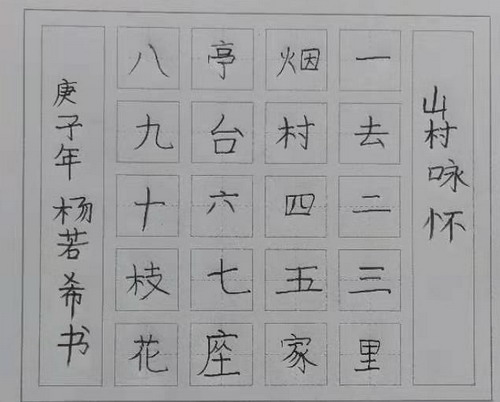 山村咏怀
一去二三里
烟村四五家
亭台六七座
八九十枝花
庚子年 杨若希书